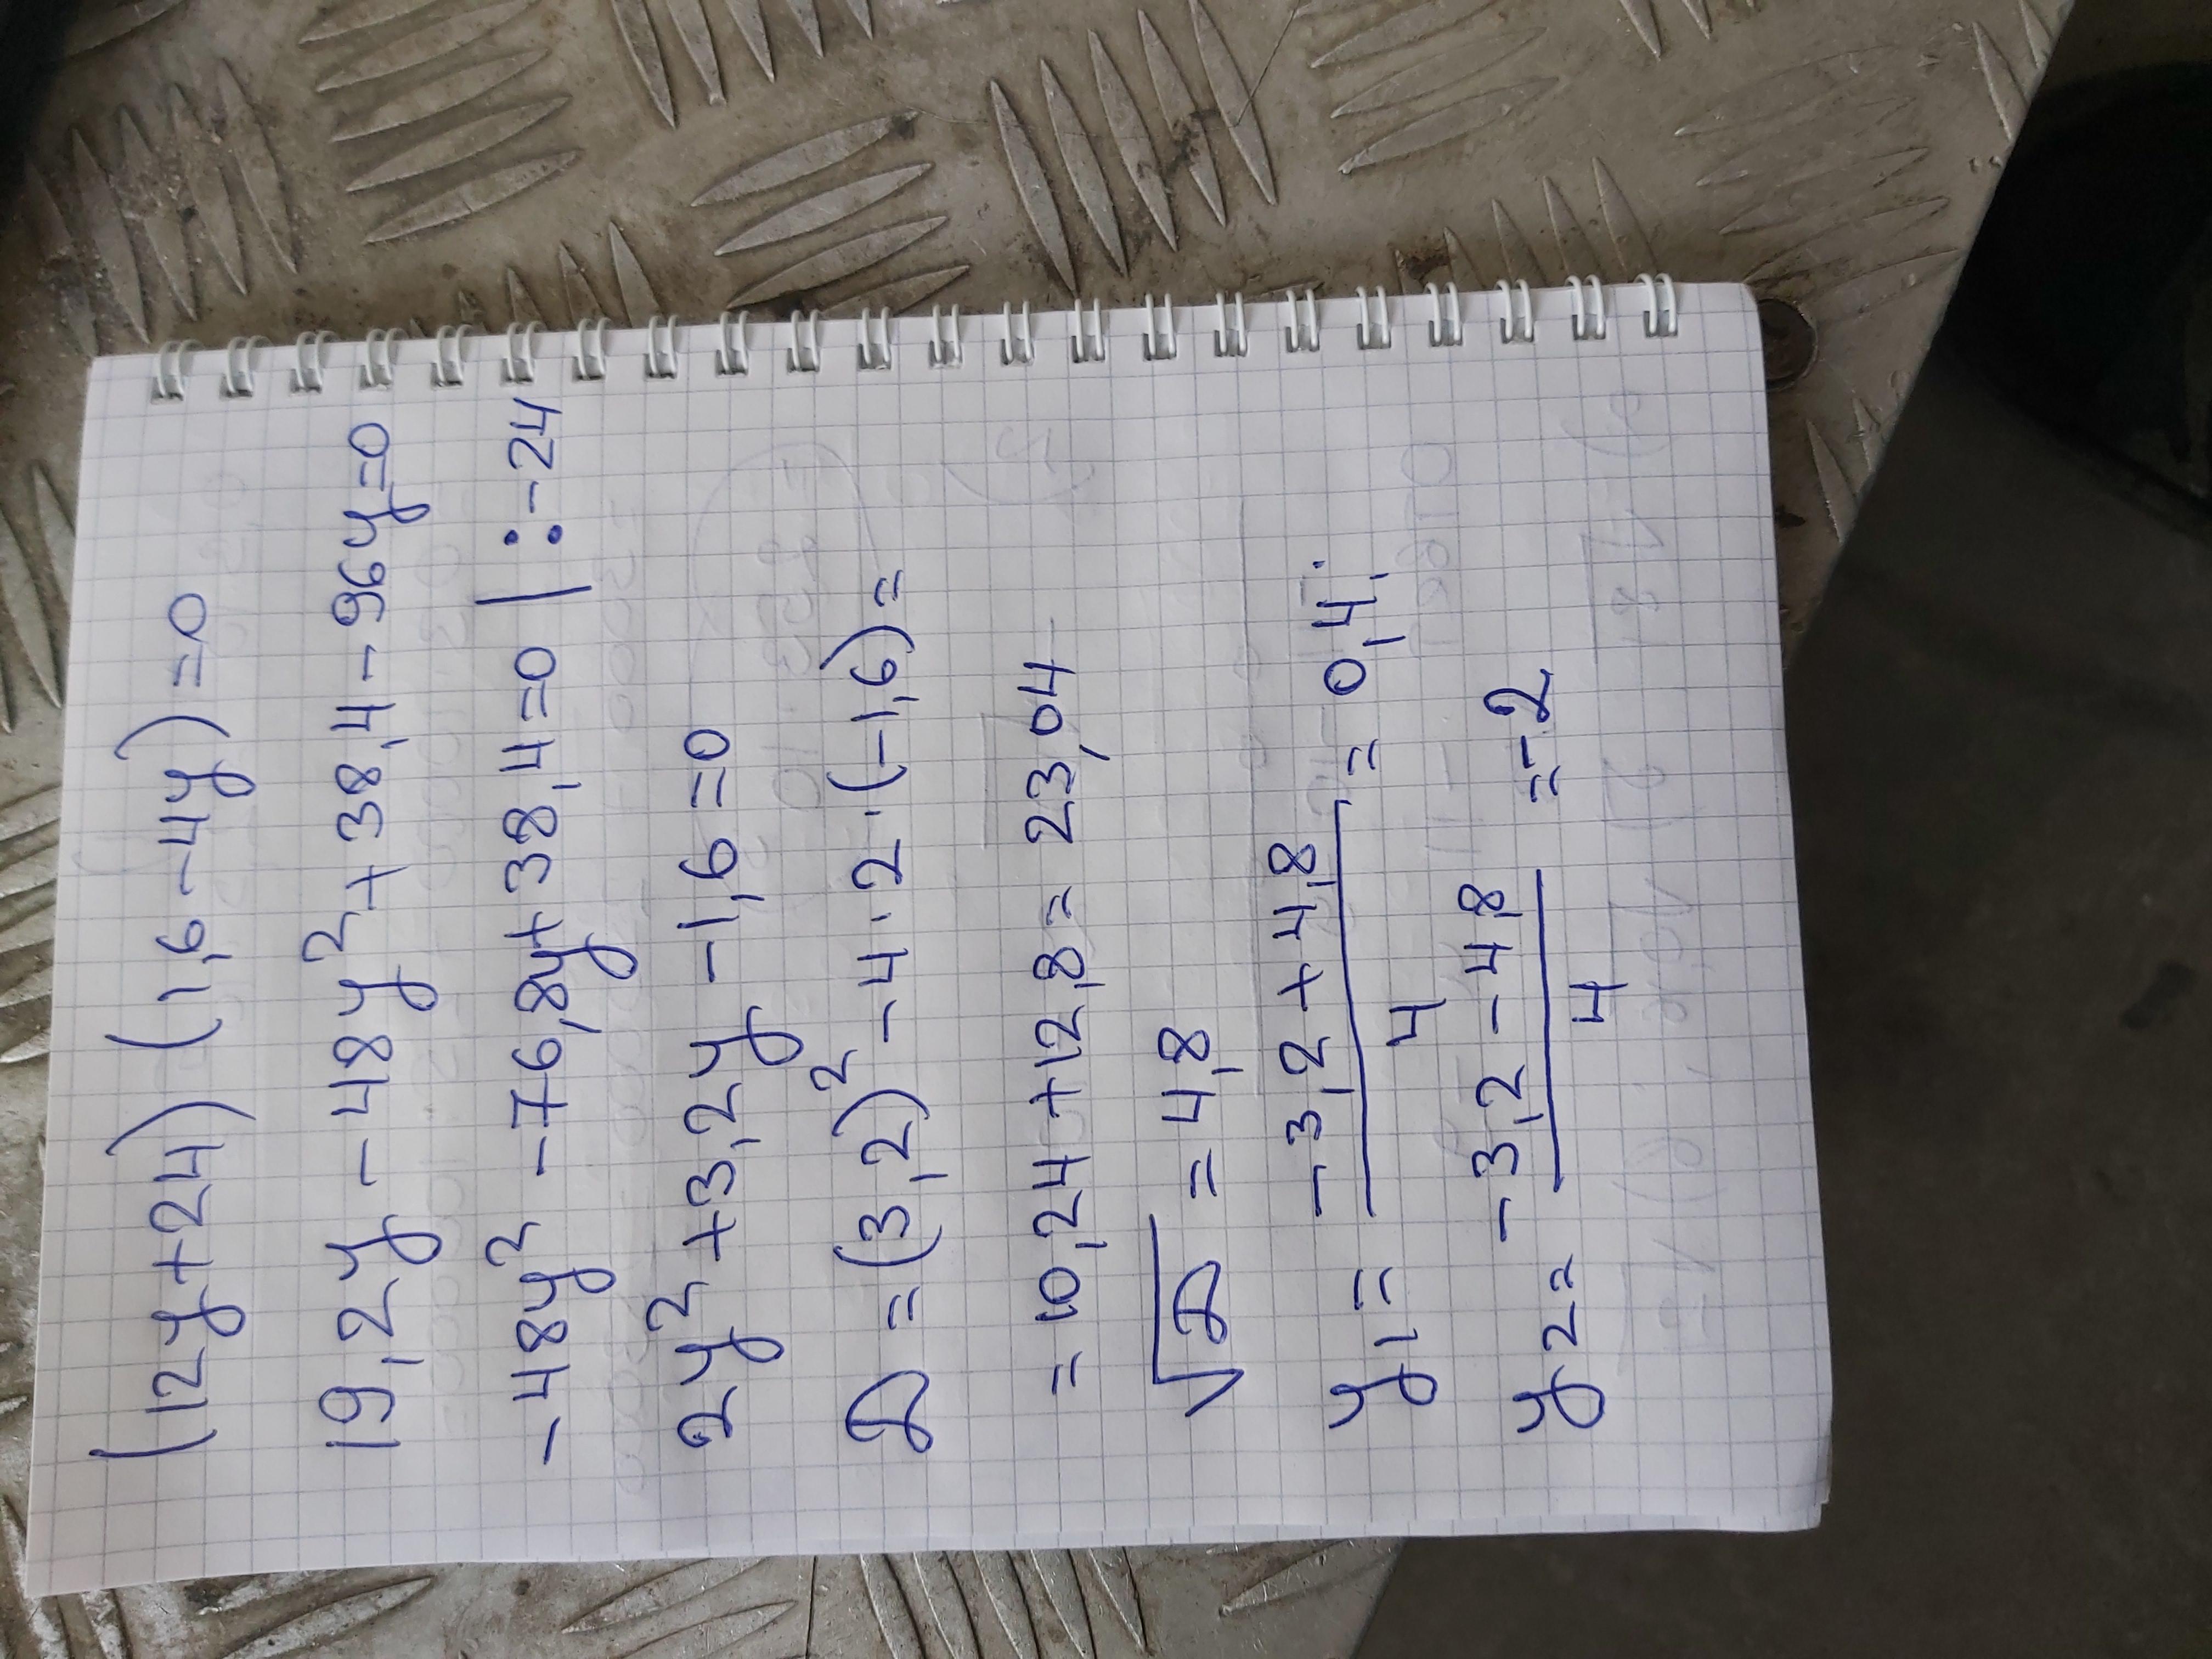 (12y+24) (1,6-4y)=0
19,2y-48y²+38,4-96y=0
-48y²-76,8y+38,4=0 | :-24
2y²+3,2y-1,6=0
D=(3,2)²-4·2·(-1,6)=
=10,24+12,8=23,04
√D=4,8
y1=(-3,2+4,8)/4=0,4;
y2=(-3,2-4,8)/4=-2